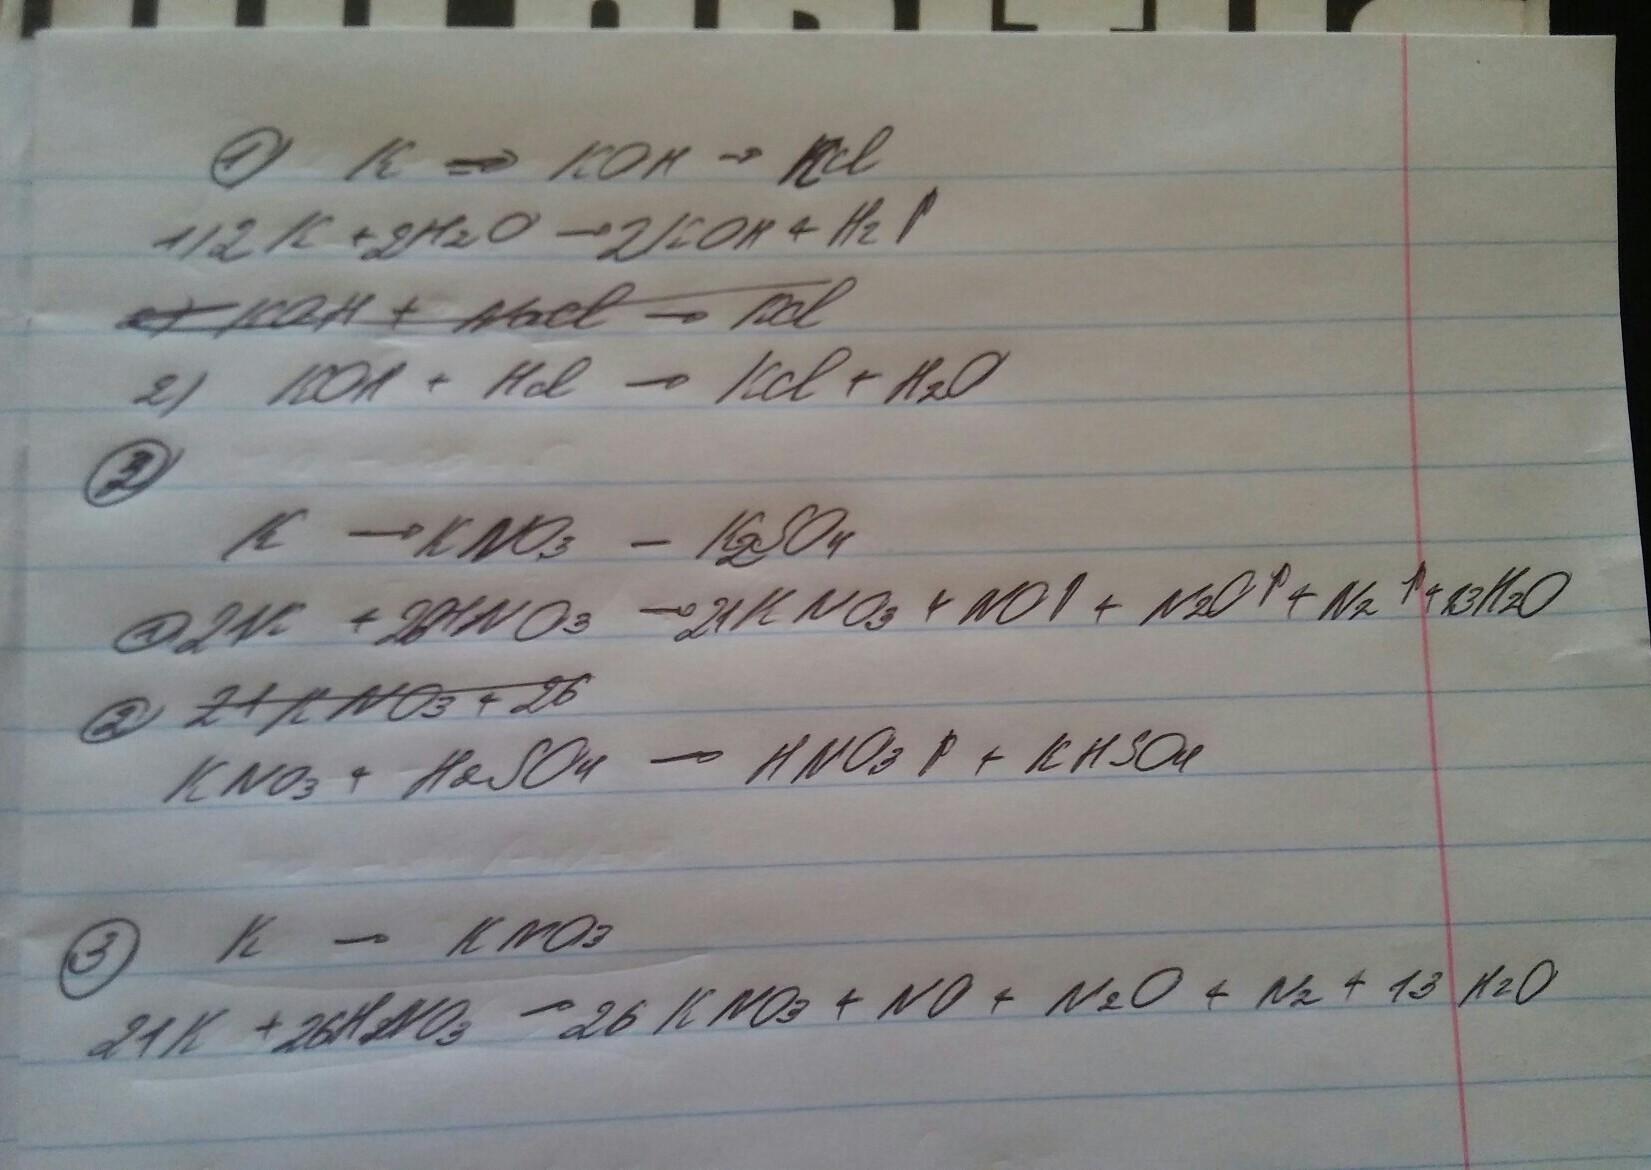 ① K → KOH → KCl
1) 2K + 2H2O → 2KOH + H2↑
2) KOH + NaCl → KCl
2) KOH + HCl → KCl + H2O
②
K → KNO3 – K2SO4
① 21K + 26HNO3 → 21KNO3 + NO↑ + N2O↑ + N2↑ + 13H2O
② 21KNO3 + 26
KNO3 + H2SO4 → HNO3↑ + KHSO4
③ K – KNO3
21K + 26HNO3 → 26KNO3 + NO + N2O + N2 + 13H2O